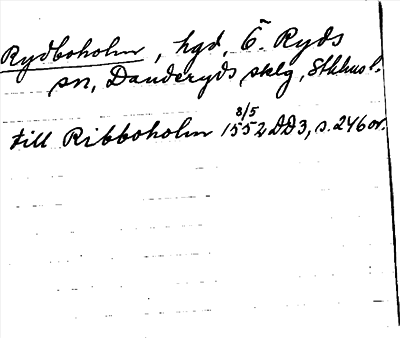 Rydboholm, hgd, Ö. Ryds
sn, Danderyds sklg, Sthlms l.
till Ribboholm 8/5 1552 DD3, s. 246 or.